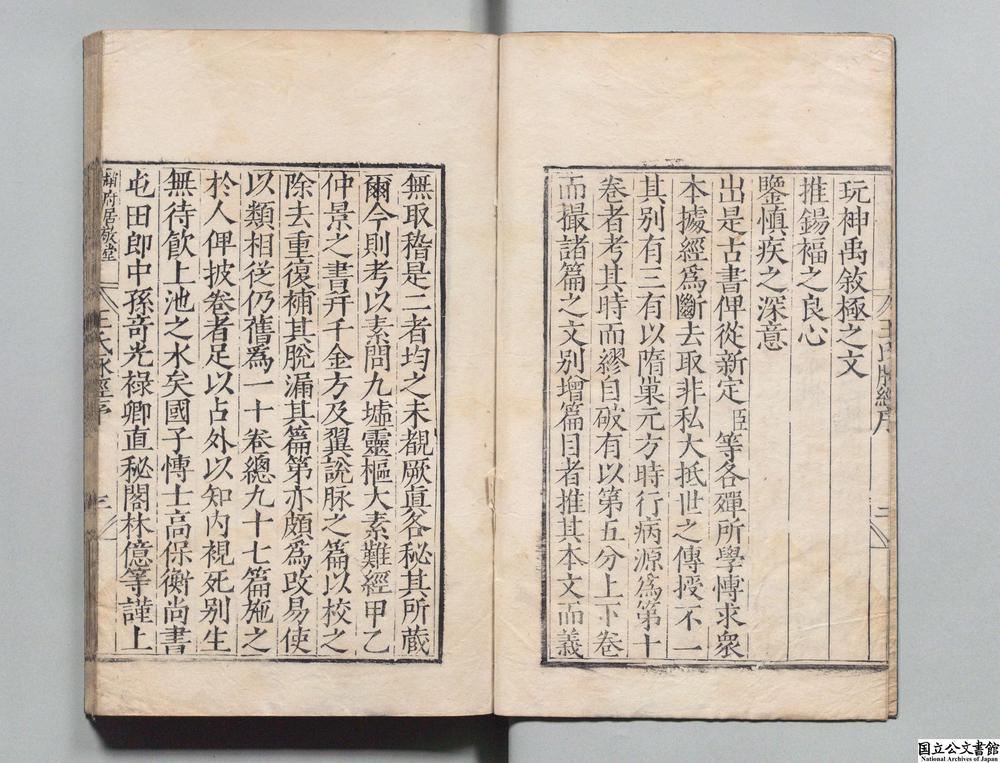 玩神禹敘極之文
推錫福之良心
鑒慎疾之深意
出是古書俾從新定臣等各殫所學博求衆
本據經為斷去取非私大抵世之傳授不一
其别有三有以隋巢元方時行病源為第十
卷者考其時而繆自破有以第五分上下卷
而撮諸篇之文别增篇目者推其本文而義
無取稽是二者均之未覩厥真各秘其所蔵
爾今則考以素問九墟靈樞太素難經甲乙
仲景之書并千金方及翼說脉之篇以校之
除去重復補其脫漏其篇第亦頗為改易使
以類相從仍舊為一十卷總九十七篇施之
於人俾披卷者足以占外以知内視死别生
無待飲上池之水矣國子博士高保衡尚書
屯田郎中孫竒光祿卿直秘閣林億等謹上
居敬堂
王氏脉經序
三
王氏脉經序
二
国立公文書館
National Archives of Japan